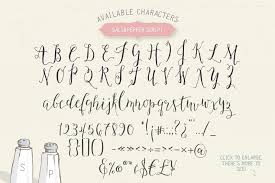 AVAILABLE CHARACTERS
SALT&PEPPER SCRIPT
A B C D E F G H I J K L M
N O P Q R S T U V W X Y Z
abcdefghijklmnopqrstuvwxyz
1234567890
CLICK TO ENLARGE,
THERE'S MORE TO
SEE!
S P